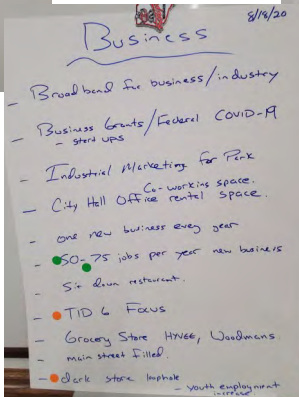 8/18/20
Business
- Broadband for business/industry
- Business Grants/Federal COVID-19
- start ups
- Industrial Marketing for Park
Co-working space.
- City Hall Office rental space.
- one new business every year
- 50-75 jobs per year new business
- Sit down restaurant.
- TID 6 Focus
- Grocery Store HYVEE, Woodmans
- main street filled.
- dark store loophole
- youth employment
increase